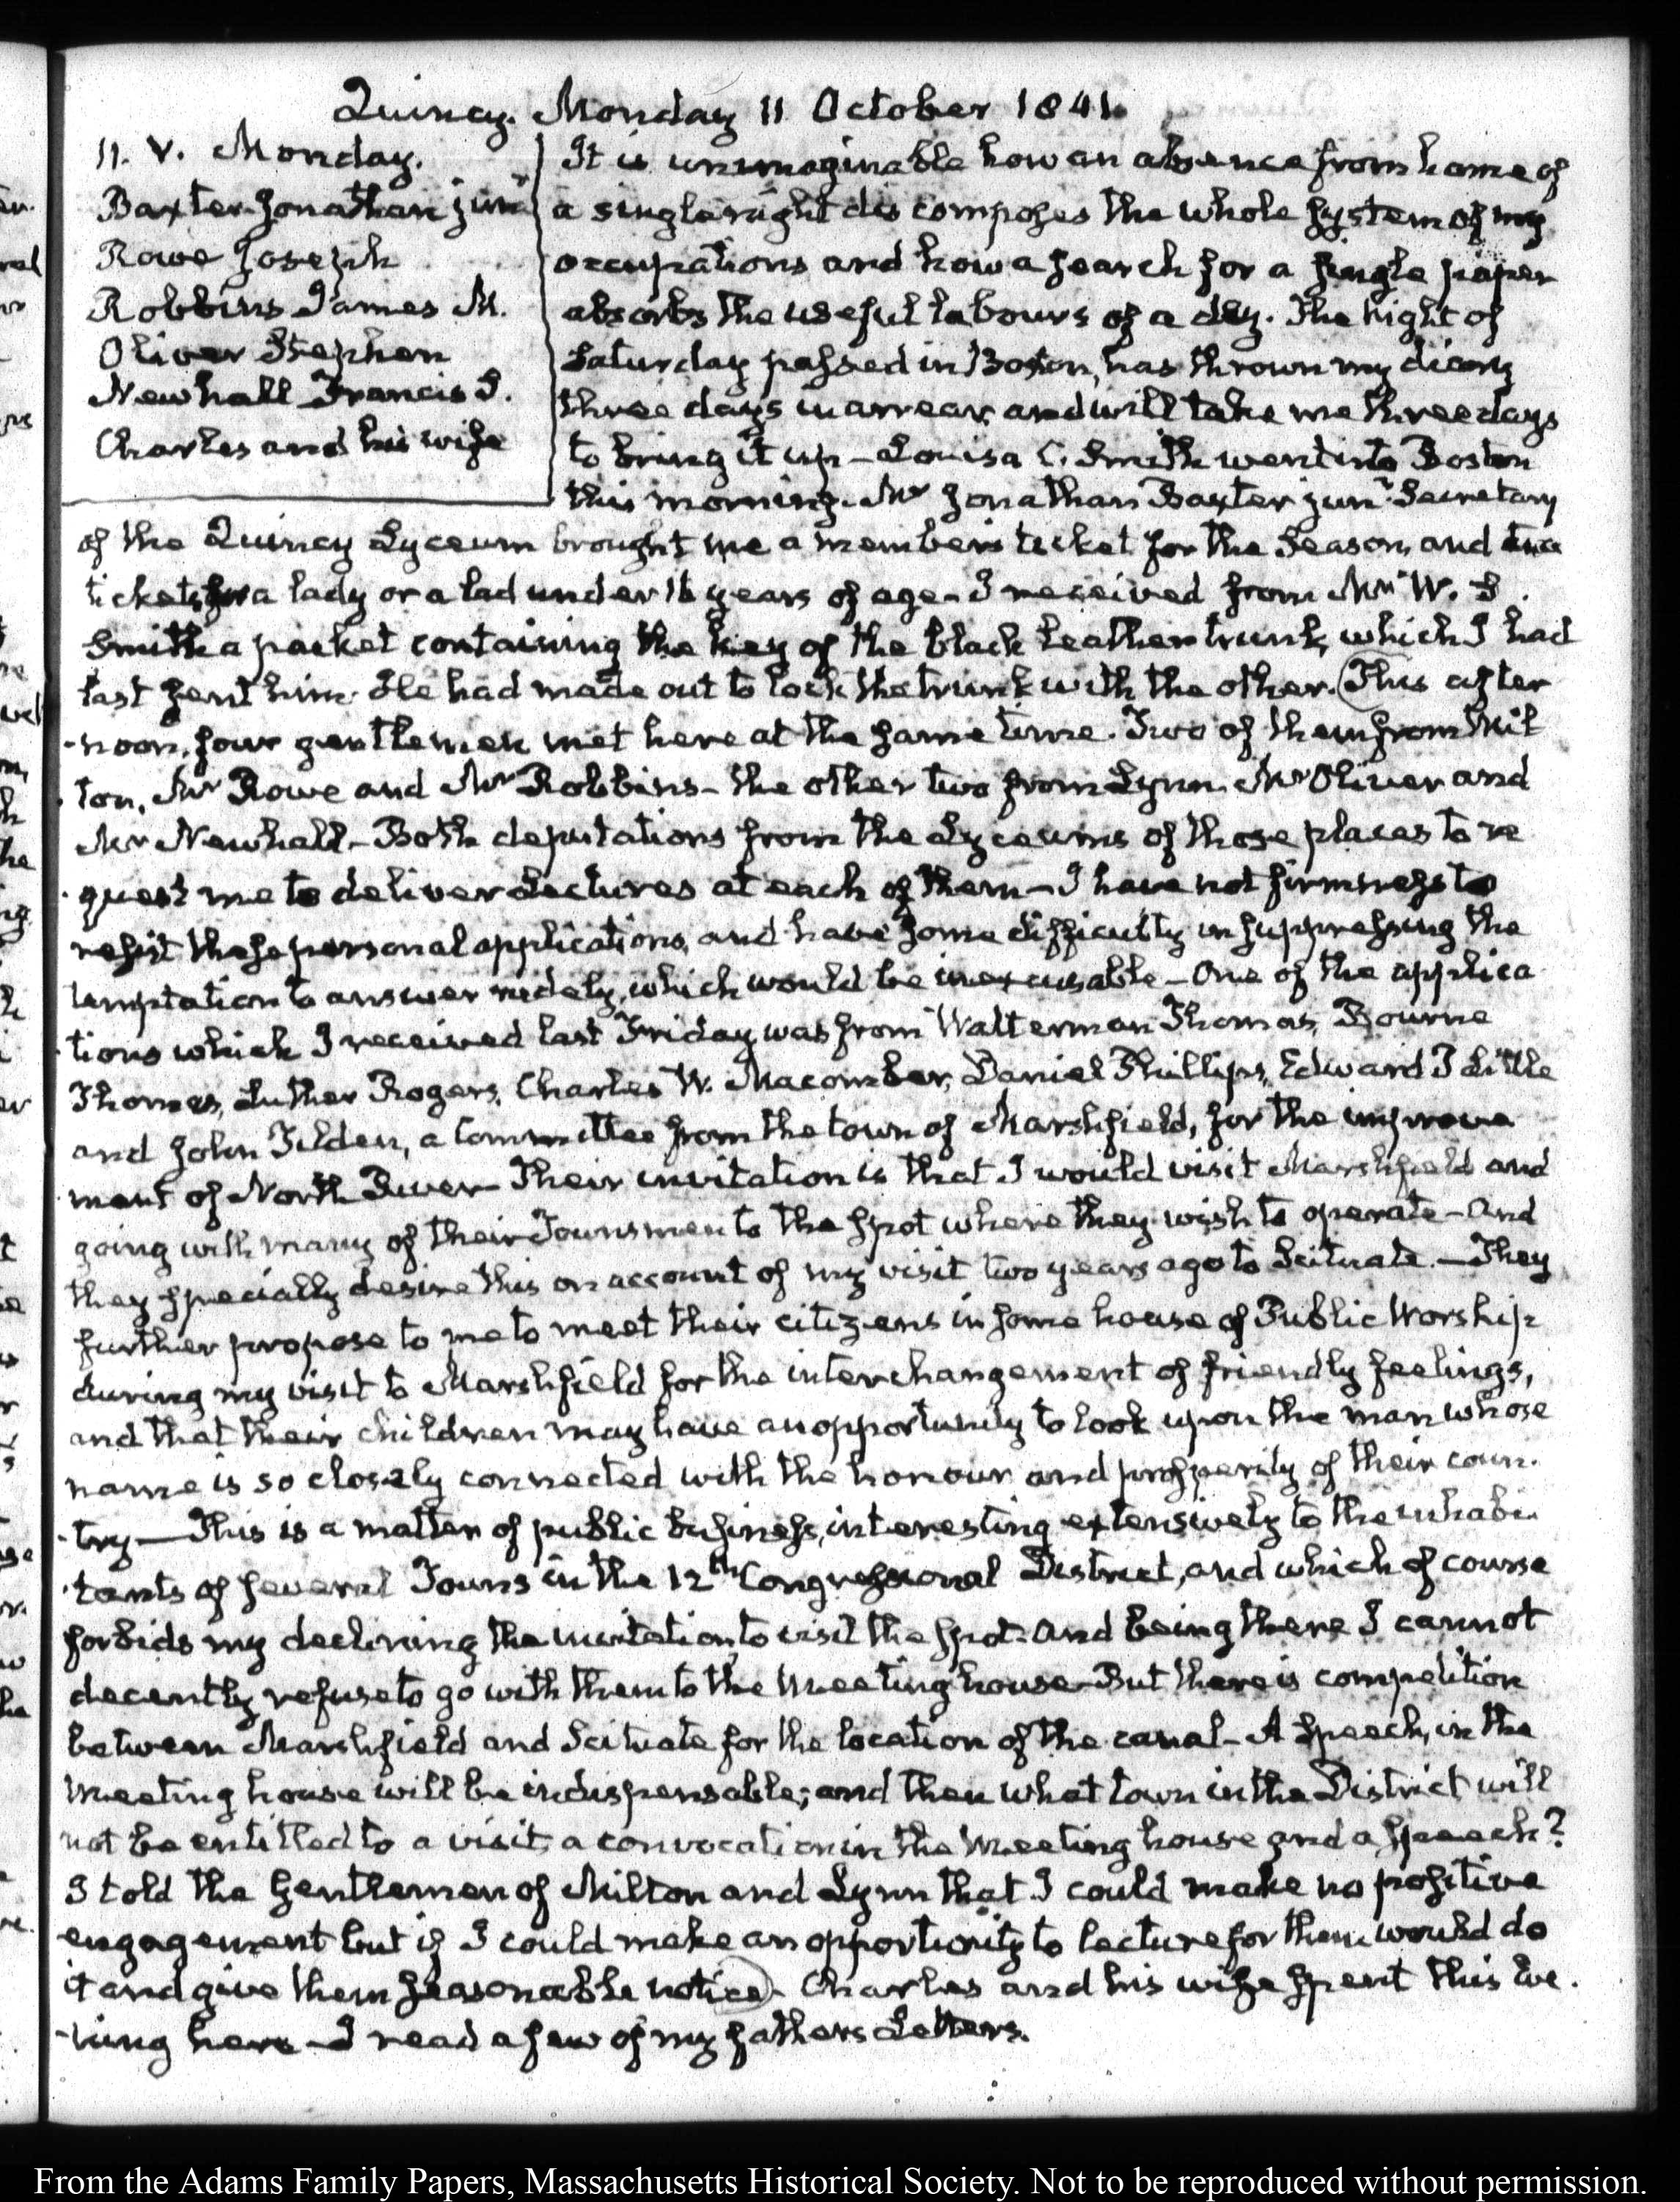 Quincy. Monday 11 October 1841.
11. V. Monday.
Baxter Jonathan junr
Rowe Joseph
Robbins James M.
Oliver Stephen
Newhall Francis S.
Charles and his wife
It is unimaginable how an absence from home of
a single night discomposes the whole system of my
occupations and how a search for a single paper
absorbs the useful labours of a day. The night of
Saturday passed in Boston, has thrown my diary
three days in arrear, and will take me three days
to bring it up – Louisa C. Smith went into Boston
this morning. Mr Jonathan Baxter junr. Secretary
of the Quincy Lyceum brought me a members ticket for the Season, and two
tickets for a lady or a lad under 16 years of age – I received from Mr W. S.
Smith a packet containing the key of the black leather trunk, which I had
last sent him. He had made out to lock the trunk with the other. (This after
-noon, four gentlemen met here at the same time. Two of them from Mil
-ton, Mr Rowe and Mr Robbins – the other two from Lynn. Mr Oliver and
Mr Newhall – Both deputations from the Lyceums of those places to re
-quest me to deliver Lectures at each of them – I have not firmness to
resist these personal applications, and have some difficulty in suppressing the
temptation to answer rudely, which would be inexcusable – One of the applica
-tions which I received last Friday was from Walterman Thomas, Bourne
Thomas, Luther Rogers, Charles W. Macomber, Daniel Phillips, Edward P Little
and John Tilden, a Committee from the town of Marshfield, for the improve
-ment of North River – Their invitation is that I would visit Marshfield and
going with many of their Townsmen to the spot where they wish to operate – And
they specially desire this on account of my visit two years ago to Scituate. – They
further propose to me to meet their citizens in some house of Public Worship
during my visit to Marshfield for the interchangement of friendly feelings,
and that their children may have an opportunity to look upon the man whose
name is so closely connected with the honour and prosperity of their coun.
-try – This is a matter of public business, interesting extensively to the inhabi
-tants of several Towns in the 12th Congressional District, and which of course
forbids my declining the invitation to visit the spot. And being there I cannot
decently refuse to go with them to the Meeting house – But there is competition
between Marshfield and Scituate for the location of the canal – A Speech, in the
Meeting house will be indispensable; and then what town in the District will
not be entitled to a visit, a convocation in the Meeting house and a speech?
I told the Gentlemen of Milton and Lynn that I could make no positive
engagement but if I could make an opportunity to lecture for them would do
it and give them seasonable notice). Charles and his wife spent this Eve.
-ning here – I read a few of my fathers Letters.
From the Adams Family Papers, Massachusetts Historical Society. Not to be reproduced without permission.